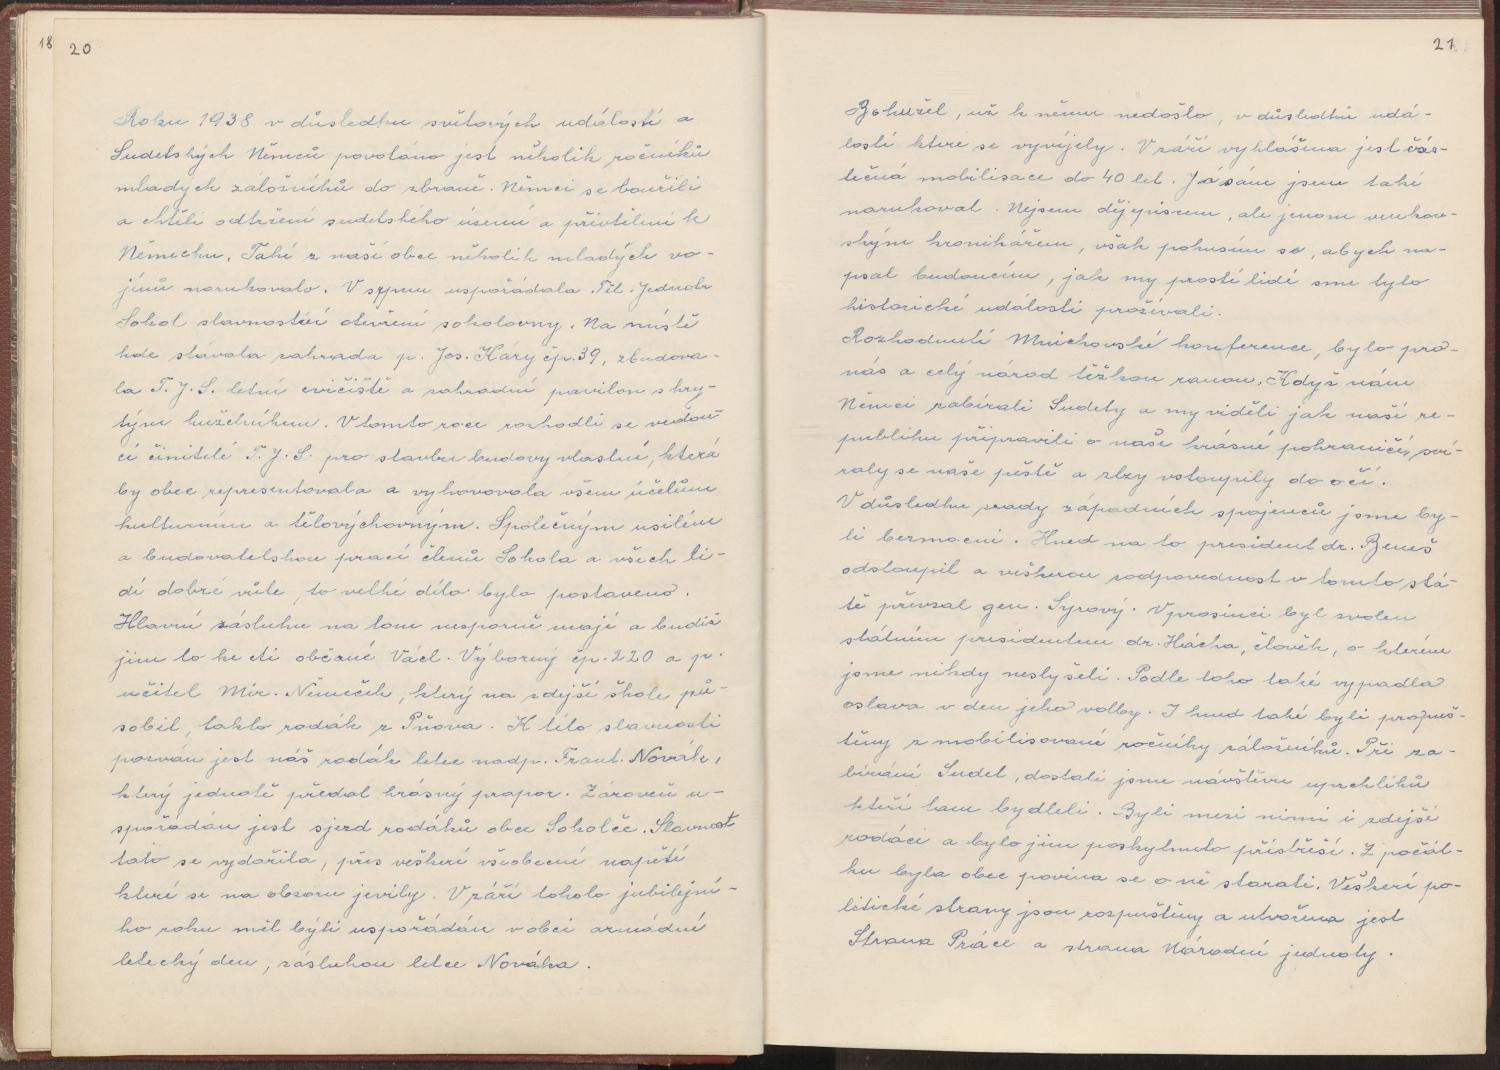 18 20
Roku 1938 v důsledku světových událostí a
Sudetských Němců povoláno jest několik ročníků
mladých záložníků do zbraně. Němci se bouřili
a chtěli odtržení sudetského území a přivtělení k
Německu. Také z naší obce několik mladých vo-
jínů narukovalo. V srpnu uspořádala Těl. Jednota
Sokol slavnostní otevření sokolovny. Na místě
kde stávala zahrada p. Jos. Káry čp. 39, zbudova-
la T. J. S. letní cvičiště a zahradní pavilon s kry-
tým kuželníkem. V tomto roce rozhodli se vedou-
cí činitelé T. J. S. pro stavbu budovy vlastní, která
by obec representovala a vyhovovala všem účelům
kulturním a tělovýchovným. Společným úsilím
a budovatelskou prací členů Sokola a všech li-
dí dobré vůle, to velké dílo bylo postaveno.
Hlavní zásluhu na tom nesporně mají a budiž
jim to ke cti občané Václ. Výborný čp. 220 a p.
učitel Mir. Němeček, který na zdejší škole pů-
sobil, takto rodák z Pňova. K této slavnosti
pozván jest náš rodák letec nadp. Frant. Novák,
který jednotě předal krásný prapor. Zároveň u-
spořádán jest sjezd rodáků obce Sokolče. Slavnost
tato se vydařila, přes veškeré všeobecné napětí
které se na obzoru jevily. V září tohoto jubilejní-
ho roku měl býti uspořádán v obci armádní
letecký den, zásluhou letce Nováka.
21
Bohužel, už k němu nedošlo, v důsledku udá-
lostí které se vyvíjely. V září vyhlášena jest čás-
tečná mobilisace do 40 let. Já sám jsem také
narukoval. Nejsem dějepiscem, ale jenom venkov-
ským kronikářem, však pokusím se, abych na-
psal budoucím, jak my prostí lidí sme tyto
historické události prožívali.
Rozhodnutí Mnichovské konference, bylo pro-
nás a celý národ těžkou ranou. Když nám
Němci zabírali Sudety a my viděli jak naší re-
publiku připravili o naše krásné pohraničí, sví-
raly se naše pěstě a slzy vstoupily do očí.
V důsledku zrady západních spojenců jsme by-
li bezmocni. Hned na to president dr. Beneš
odstoupil a veškerou zodpovědnost v tomto stá-
tě převzal gen. Syrový. V prosinci byl zvolen
státním presidentem dr. Hácha, člověk, o kterém
jsme nikdy neslyšeli. Podle toho také vypadla
oslava v den jeho volby. I hned také byli propuš-
těny z mobilisované ročníky záložníků. Při za-
bírání Sudet, dostali jsme návštěvu uprchlíků
kteří tam bydleli. Byli mezi nimi i zdejší
rodáci a bylo jim poskytnuto přístřeší. Z počát-
ku byla obec povina se o ně starati. Veškeré po-
litické strany jsou rozpuštěny a utvořena jest
Strana Práce a strana Národní jednoty.